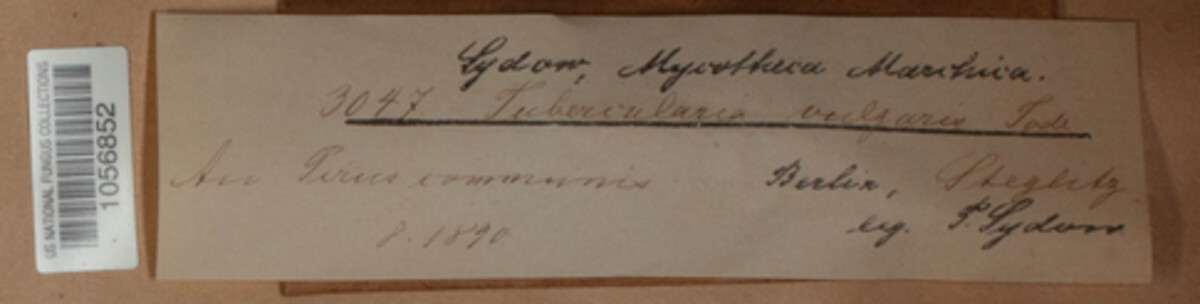 US NATIONAL FUNGUS COLLECTIONS
1056852
Sydow, Mycotheca Marchica.
3047. Tubercularia vulgaris Tode
An Pirus communis Berlin, Steglitz
8. 1890. leg. P. Sydow